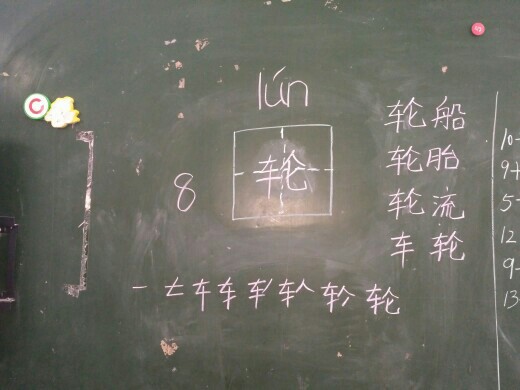 lún
轮
8
轮船
轮胎
轮流
车轮
一 𠂇 车 车 轮
10-
9+
5-
12
9-
13